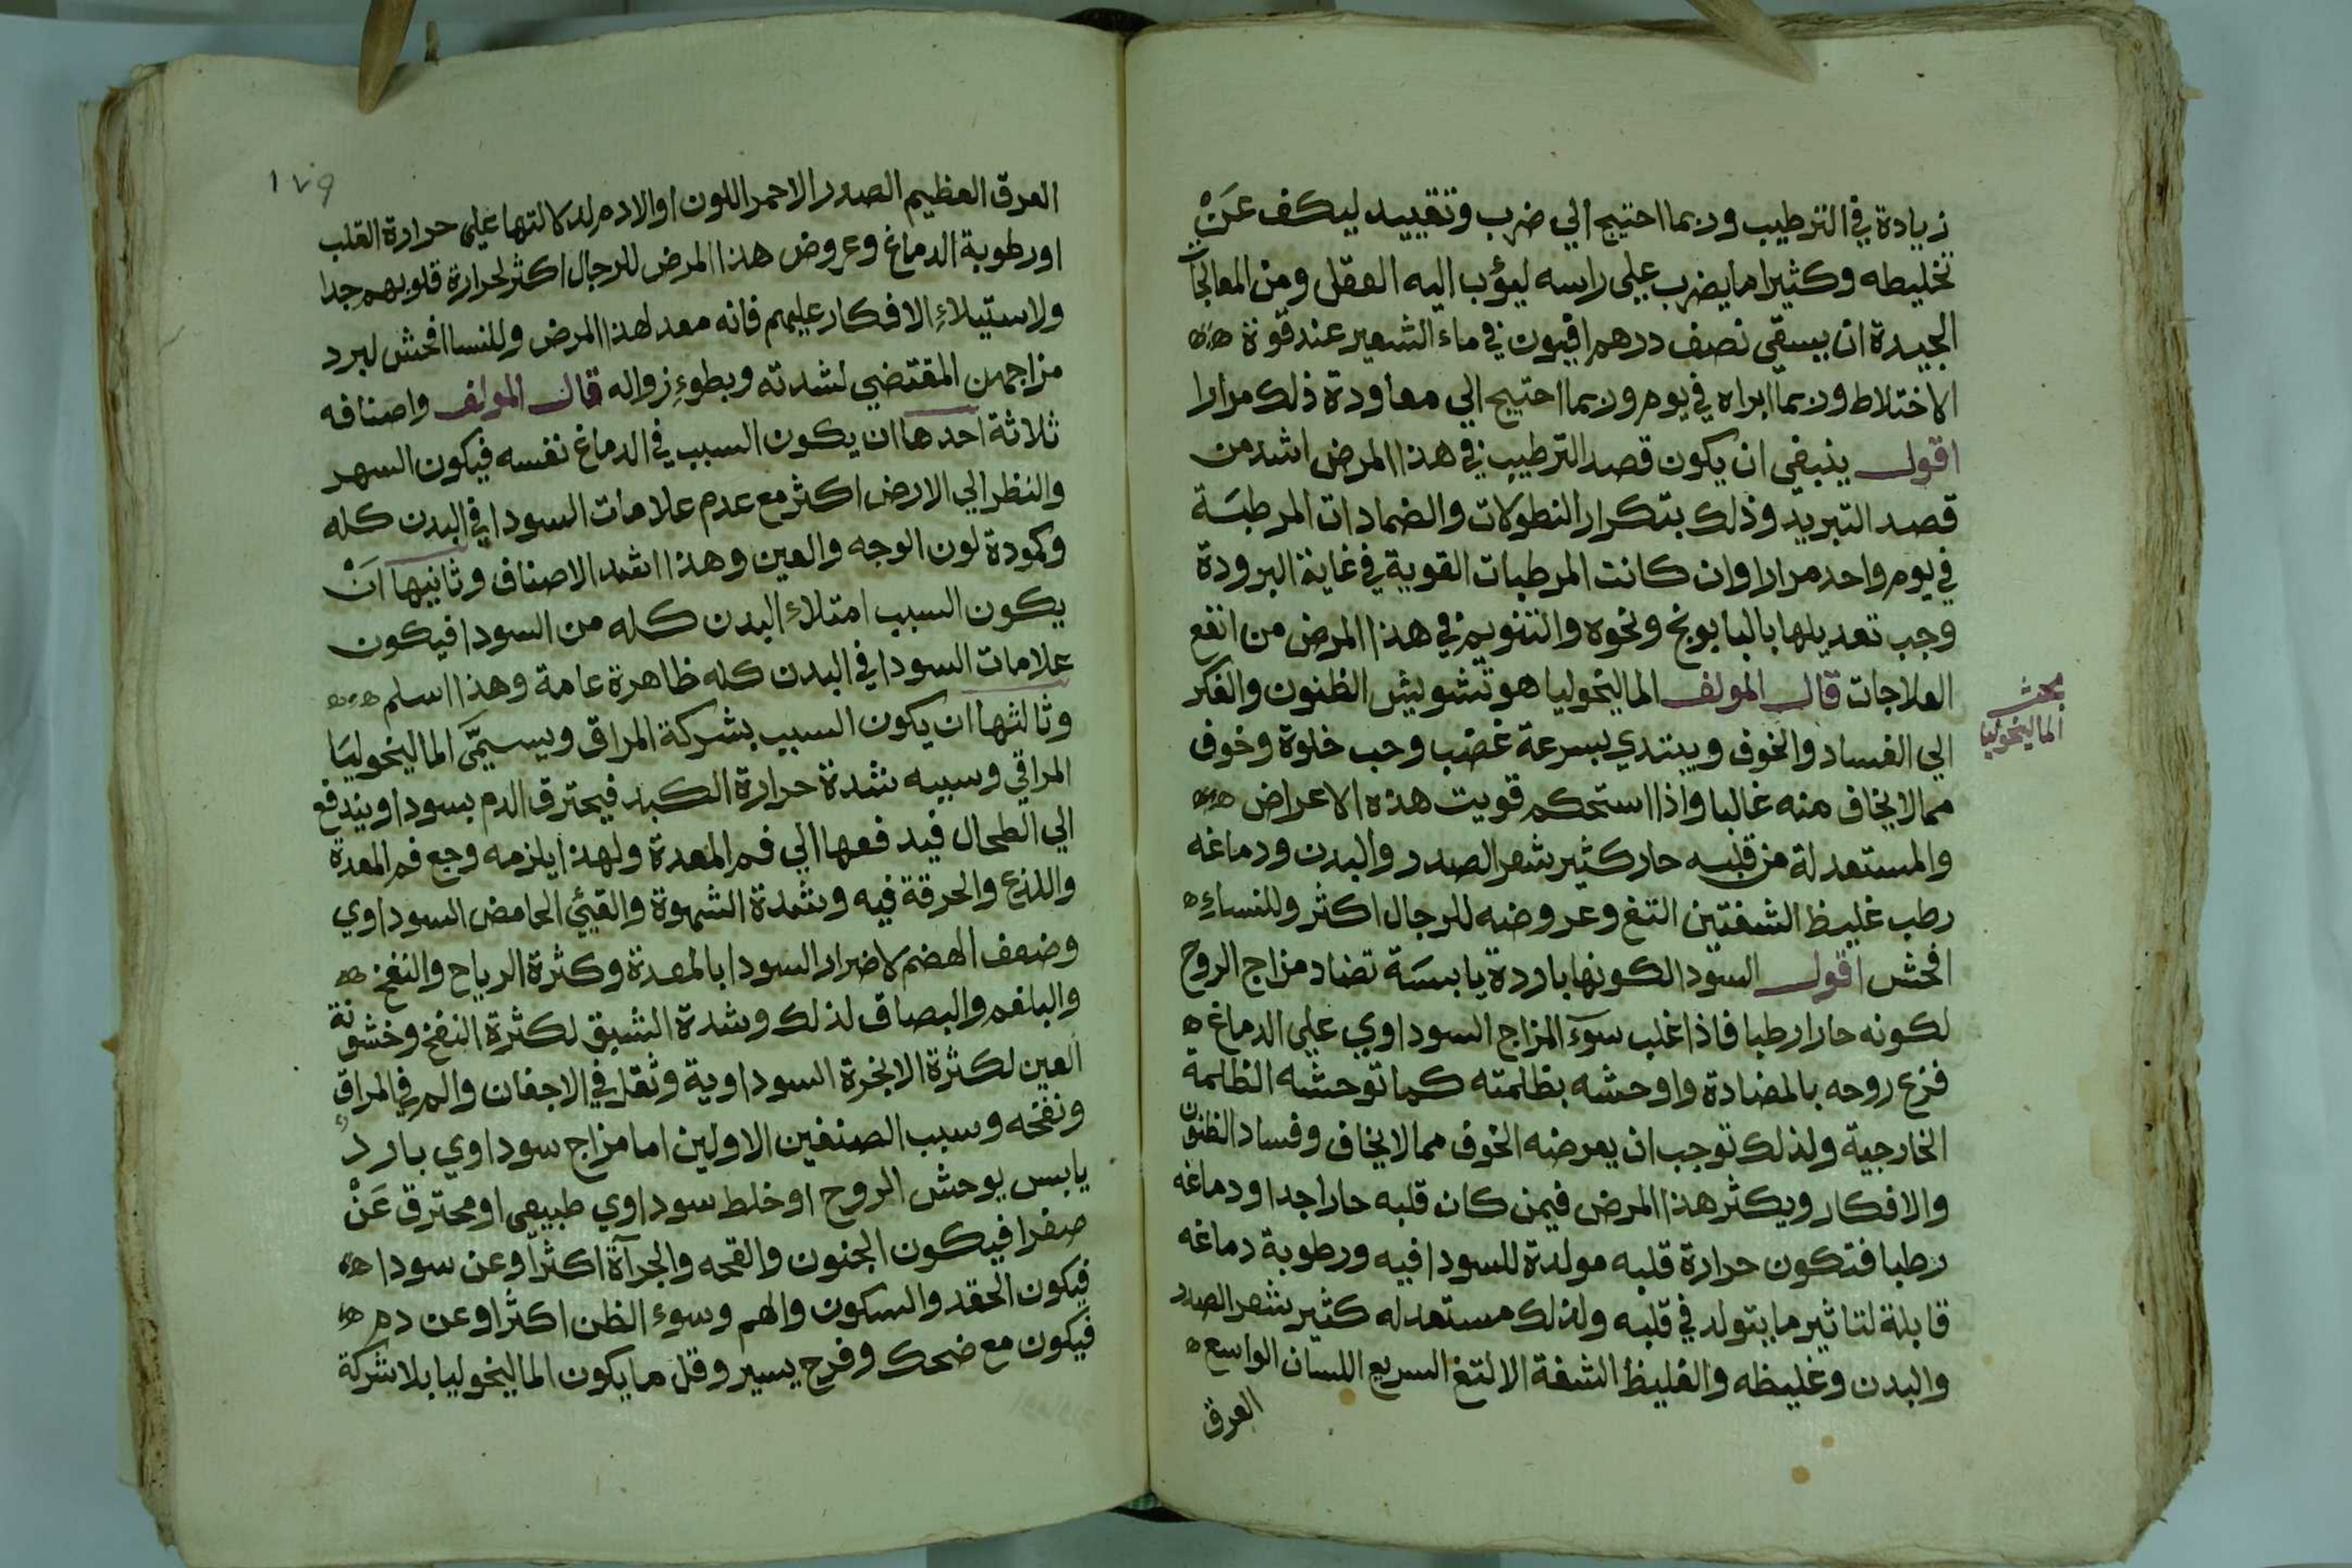 زيادة في الترطيب وربما احتيج الي ضرب وتقييد ليكف عَنْ
تخليطه وكثيرا ما يضرب علي راسه ليؤب اليه العقل ومن المعالجا
الجيدة ان يسقي نصف درهم افيون في ماء الشعير عند قوة
الاختلاط وربما ابراه في يوم وربما احتيج الي معاودة ذلك مرارا
اقول ينبغي ان يكون قصد الترطيب في هذا المرض اشد من
قصد التبريد وذلك بتكرار النطولات والضمادات المرطبَة
في يوم واحد مرارا وان كانت المرطبات القوية في غاية البرودة
وجب تعديلها بالبابونج ونحوه والتنويم في هذا المرض من انفع
العلاجات قال المولف الماليخوليا هو تشويش الظنون والفكر
بحث
الماليخوليا
الي الفساد والخوف ويبتدي بسرعة غضب وحب خلوة وخوف
مما لا يخاف منه غالبا واذا استحكم قويت هذه الاعراض
والمستعد لة من قلبه حار كثير شعر الصدر والبدن ودماغه
رطب غليظ الشفتين التغ وعروضه للرجال اكثر وللنساءِ
افحش اقول السودا لكونها باردة يابسَة تضاد مزاج الروح
لكونه حارا رطبا فاذا غلب سوٓء المزاج السوداوي علي الدماغ
فزع روحه بالمضادة واوحشه بظلمته كما توحشه الظلمة
الخارجية ولذلك توجب ان يعرضه الخوف مما لا يخاف وفساد الظنون
والافكار ويكثر هذا المرض فيمن كان قلبه حارا جدا ودماغه
رطبا فتكون حرارة قلبه مولدة للسودا فيه ورطوبة دماغه
قابلة لتاثير ما يتولد في قلبه ولذلك مستعد له كثير شعر الصدر
والبدن وغليظه والغليظ الشفة الالتغ السريع اللسان الواسع
العرق
١٧٩
العرق العظيم الصدر الاحمر اللون او الادم لدلالتها علي حرارة القلب
او رطوبة الدماغ وعروض هذا المرض للرجال اكثر لحرارة قلوبهم جدا
ولاستيلاءِ الافكار عليهم فانه معد لهذا المرض وللنسا افحش لبرد
مزاجهن المقتضي لشدته وبطوءِ زواله قال المولف واصنافه
ثلاثة احدها ان يكون السبب في الدماغ نفسه فيكون السهر
والنظر الي الارض اكثر مع عدم علامات السودا في البدن كله
وكمودة لون الوجه والعين وهذا اشد الاصناف وثانيها اَنْ
يكون السبب امتلاء البدن كله من السودا فيكون
علامات السودا في البدن كله ظاهرة عامة وهذا اسلم
وثالثها ان يكون السبب بشركة المراق ويسمَّي الماليخوليَا
المراقي وسببه شدة حرارة الكبد فيحترق الدم بسودا ويندفع
الي الطحال فيدفعها الي فم المعدة ولهذا يلزمه وجع فم المعدة
واللذع والحرقة فيه وشدة الشهوة والقيئ الحامض السوداوي
وضعف الهضم لاضرار السودا بالمعدة وكثرة الرياح والنفخ
والبلغم والبصاق لذلك وشدة الشبق لكثرة النفخ وخشونة
العين لكثرة الابخرة السوداوية وثقل في الاجفان والم في المراق
ونفخه وسبب الصنفين الاولين اما مزاج سوداوي باردٌ
يابس يوحش الروح او خلط سوداوي طبيعي او محترق عَنْ
صفرا فيكون الجنون والقحه والجرآة اكثر او عن سودا
فيكون الحقد والسكون والهم وسوء الظن اكثر او عن دم
فيكون مع ضحك وفرح يسير وقل ما يكون الماليخوليا بلا شركة